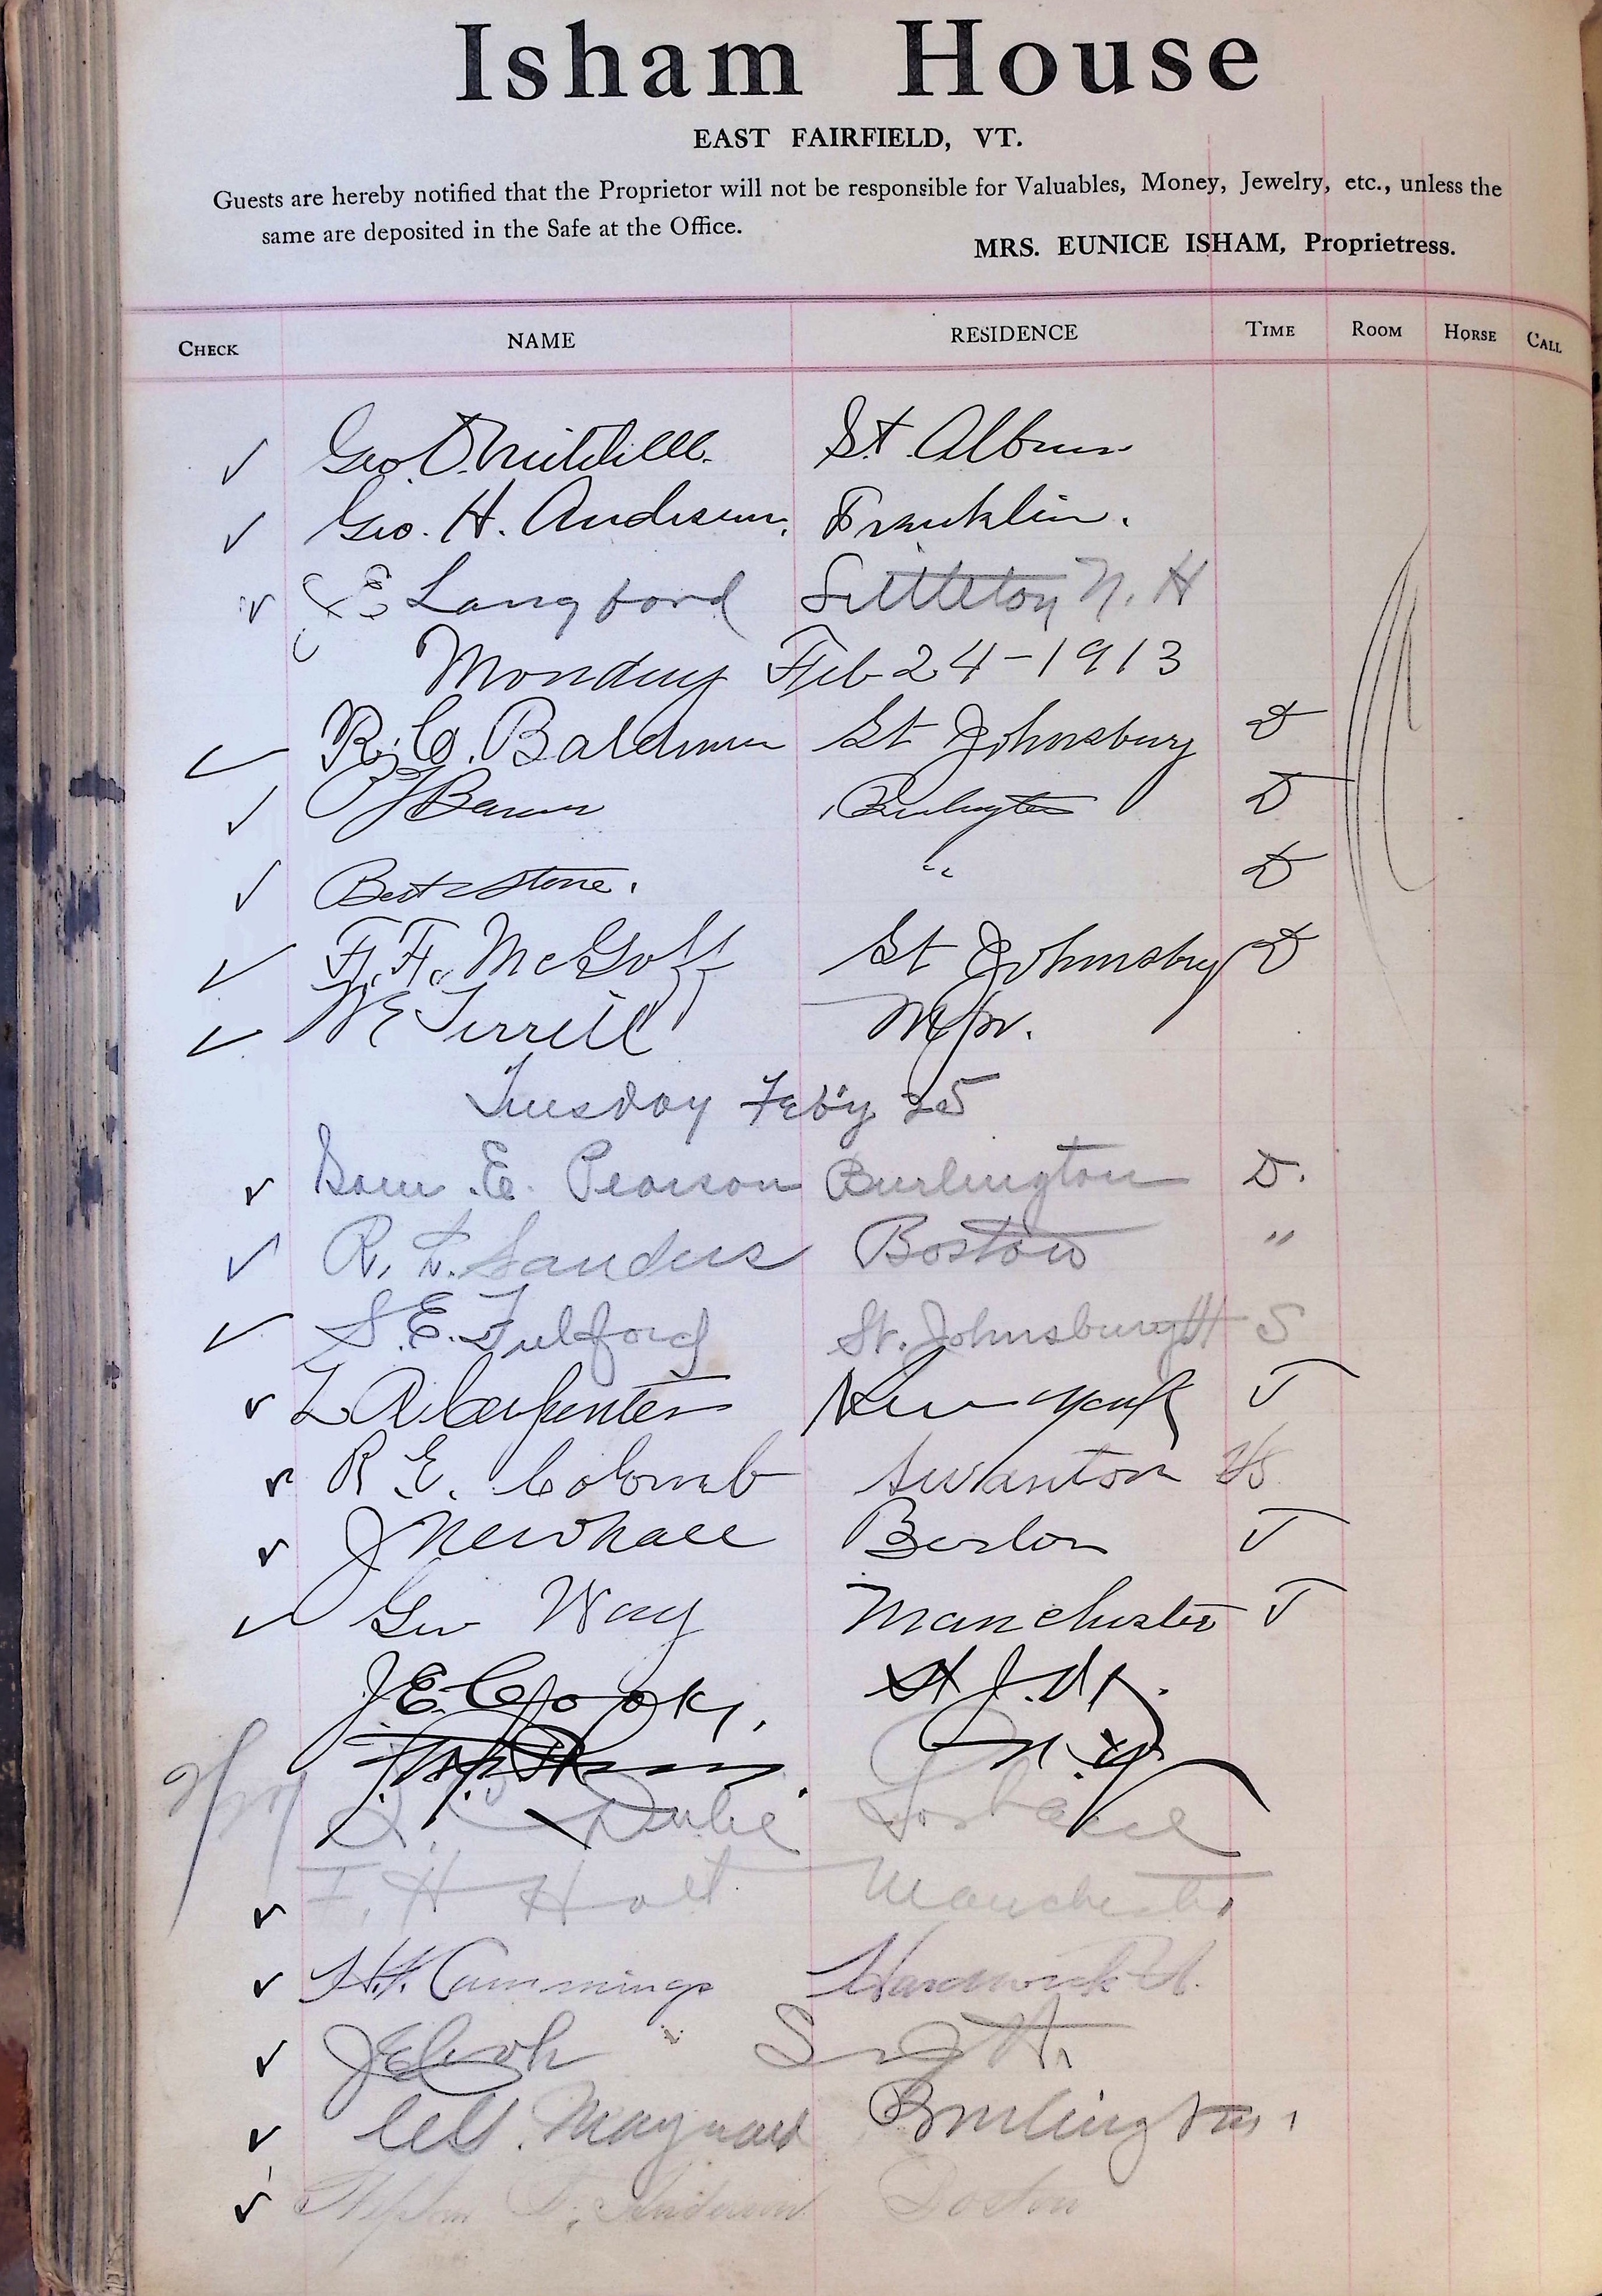 Isham House
EAST FAIRFIELD, VT.
Guests are hereby notified that the Proprietor will not be responsible for Valuables, Money, Jewelry, etc., unless the
same are deposited in the Safe at the Office.
MRS. EUNICE ISHAM, Proprietress.
CHECK NAME RESIDENCE TIME ROOM HORSE CALL
✓ Geo. O. Mitchell. St. Albans
✓ Geo. H. Anderson. Franklin.
✓ E Langford Littleton N. H
Monday Feb 24-1913
✓ R. C. Baldwin St Johnsbury D
✓ Burlington D
✓ Bert Stone. " D
✓ F. F. McGoff St Johnsbury D
✓ W E Tirrell Mpr.
Tuesday Feb'y 25
✓ Sam. E. Pearson Burlington D.
✓ R. L. Sanders Boston "
✓ S. E. Fulford St. Johnsbury Vt S
✓ L A Carpenter New York T
✓ R. E. Colomb Swanton Vt
✓ J Newhall Boston T
✓ Geo Way Manchester T
J. E. Cook, St J. Vt.
N. Y.
Dube
✓ F. H Holt Manchester
✓ H. H. Cummings Hardwick Vt.
✓ J E Cook
✓ Maynard Burlington
✓ Stephen Anderson Boston